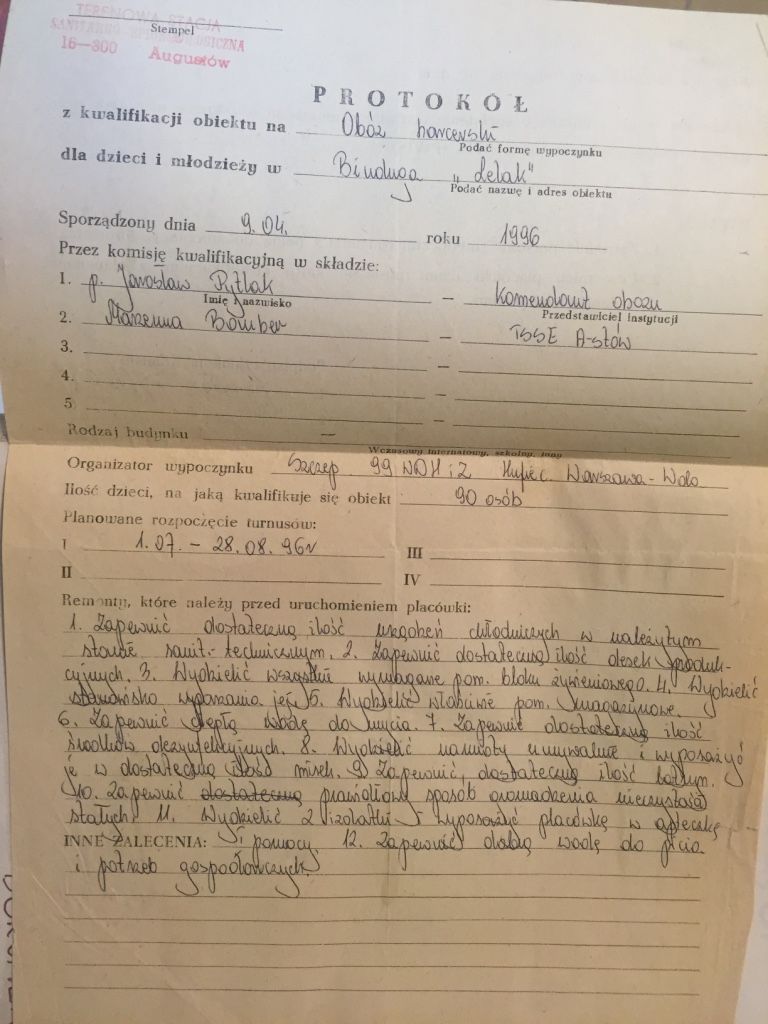 TERENOWA STACJA
Stempel
SANITARNO
16-300 Augustów
PROTOKÓŁ
z kwalifikacji obiektu na Obóz harcerski
Podać formę wypoczynku
dla dzieci i młodzieży w Binduga „Lelak"
Podać nazwę i adres obiektu
Sporządzony dnia 9.04. roku 1996
Przez komisję kwalifikacyjną w składzie:
1. p. Jarosław Pytlak — Komendant obozu
Imię i nazwisko Przedstawiciel instytucji
2. Marzenna Bomber — TSSE A-stów
3. —
4. —
5 —
Rodzaj budynku —
Wczasowy internatowy, szkolny, inny
Organizator wypoczynku Szczep 99 WDH i Z Hufiec Warszawa-Wola
Ilość dzieci, na jaką kwalifikuje się obiekt 90 osób
Planowane rozpoczęcie turnusów:
I 1.07. - 28.08.96r III
II IV
Remonty, które należy przed uruchomieniem placówki:
1. Zapewnić dostateczną ilość urządzeń chłodniczych w należytym
stanie sanit.-technicznym. 2. Zapewnić dostateczną ilość desek produk-
cyjnych. 3. Wydzielić wszystkie wymagane pom. bloku żywieniowego. 4. Wydzielić
stanowisko wydawania 5. Wydzielić właściwe pom. magazynowe.
6. Zapewnić ciepłą wodę do mycia. 7. Zapewnić dostateczną ilość
środków dezynfekcyjnych. 8. Wydzielić namioty umywalnie i wyposażyć
je w dostateczną ilość misek. 9. Zapewnić dostateczną ilość
10. Zapewnić dostateczną prawidłowy sposób gromadzenia nieczystości
stałych 11. Wydzielić 2 izolatki i wyposażyć placówkę w apteczkę
INNE ZALECENIA: I pomocy. 12. Zapewnić dobrą wodę do picia
i potrzeb gospodarczych.